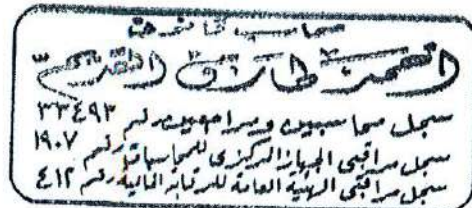 محاسب قانونى
أحمد طارق القريعى
سجل محاسبين ومراجعين رقم ٣٣٤٩٣
سجل مراقبى الجهاز المركزى للمحاسبات رقم ١٩٠٧
سجل مراقبى الهيئة العامة للرقابة المالية رقم ٤١٢